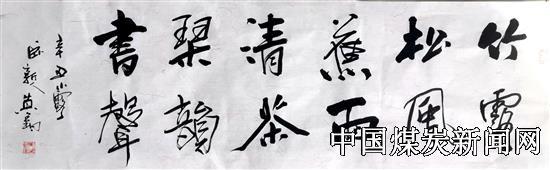 竹露
松風
蕉雨
清茶
琹韻
書聲
辛丑小雪
中国煤炭新闻网